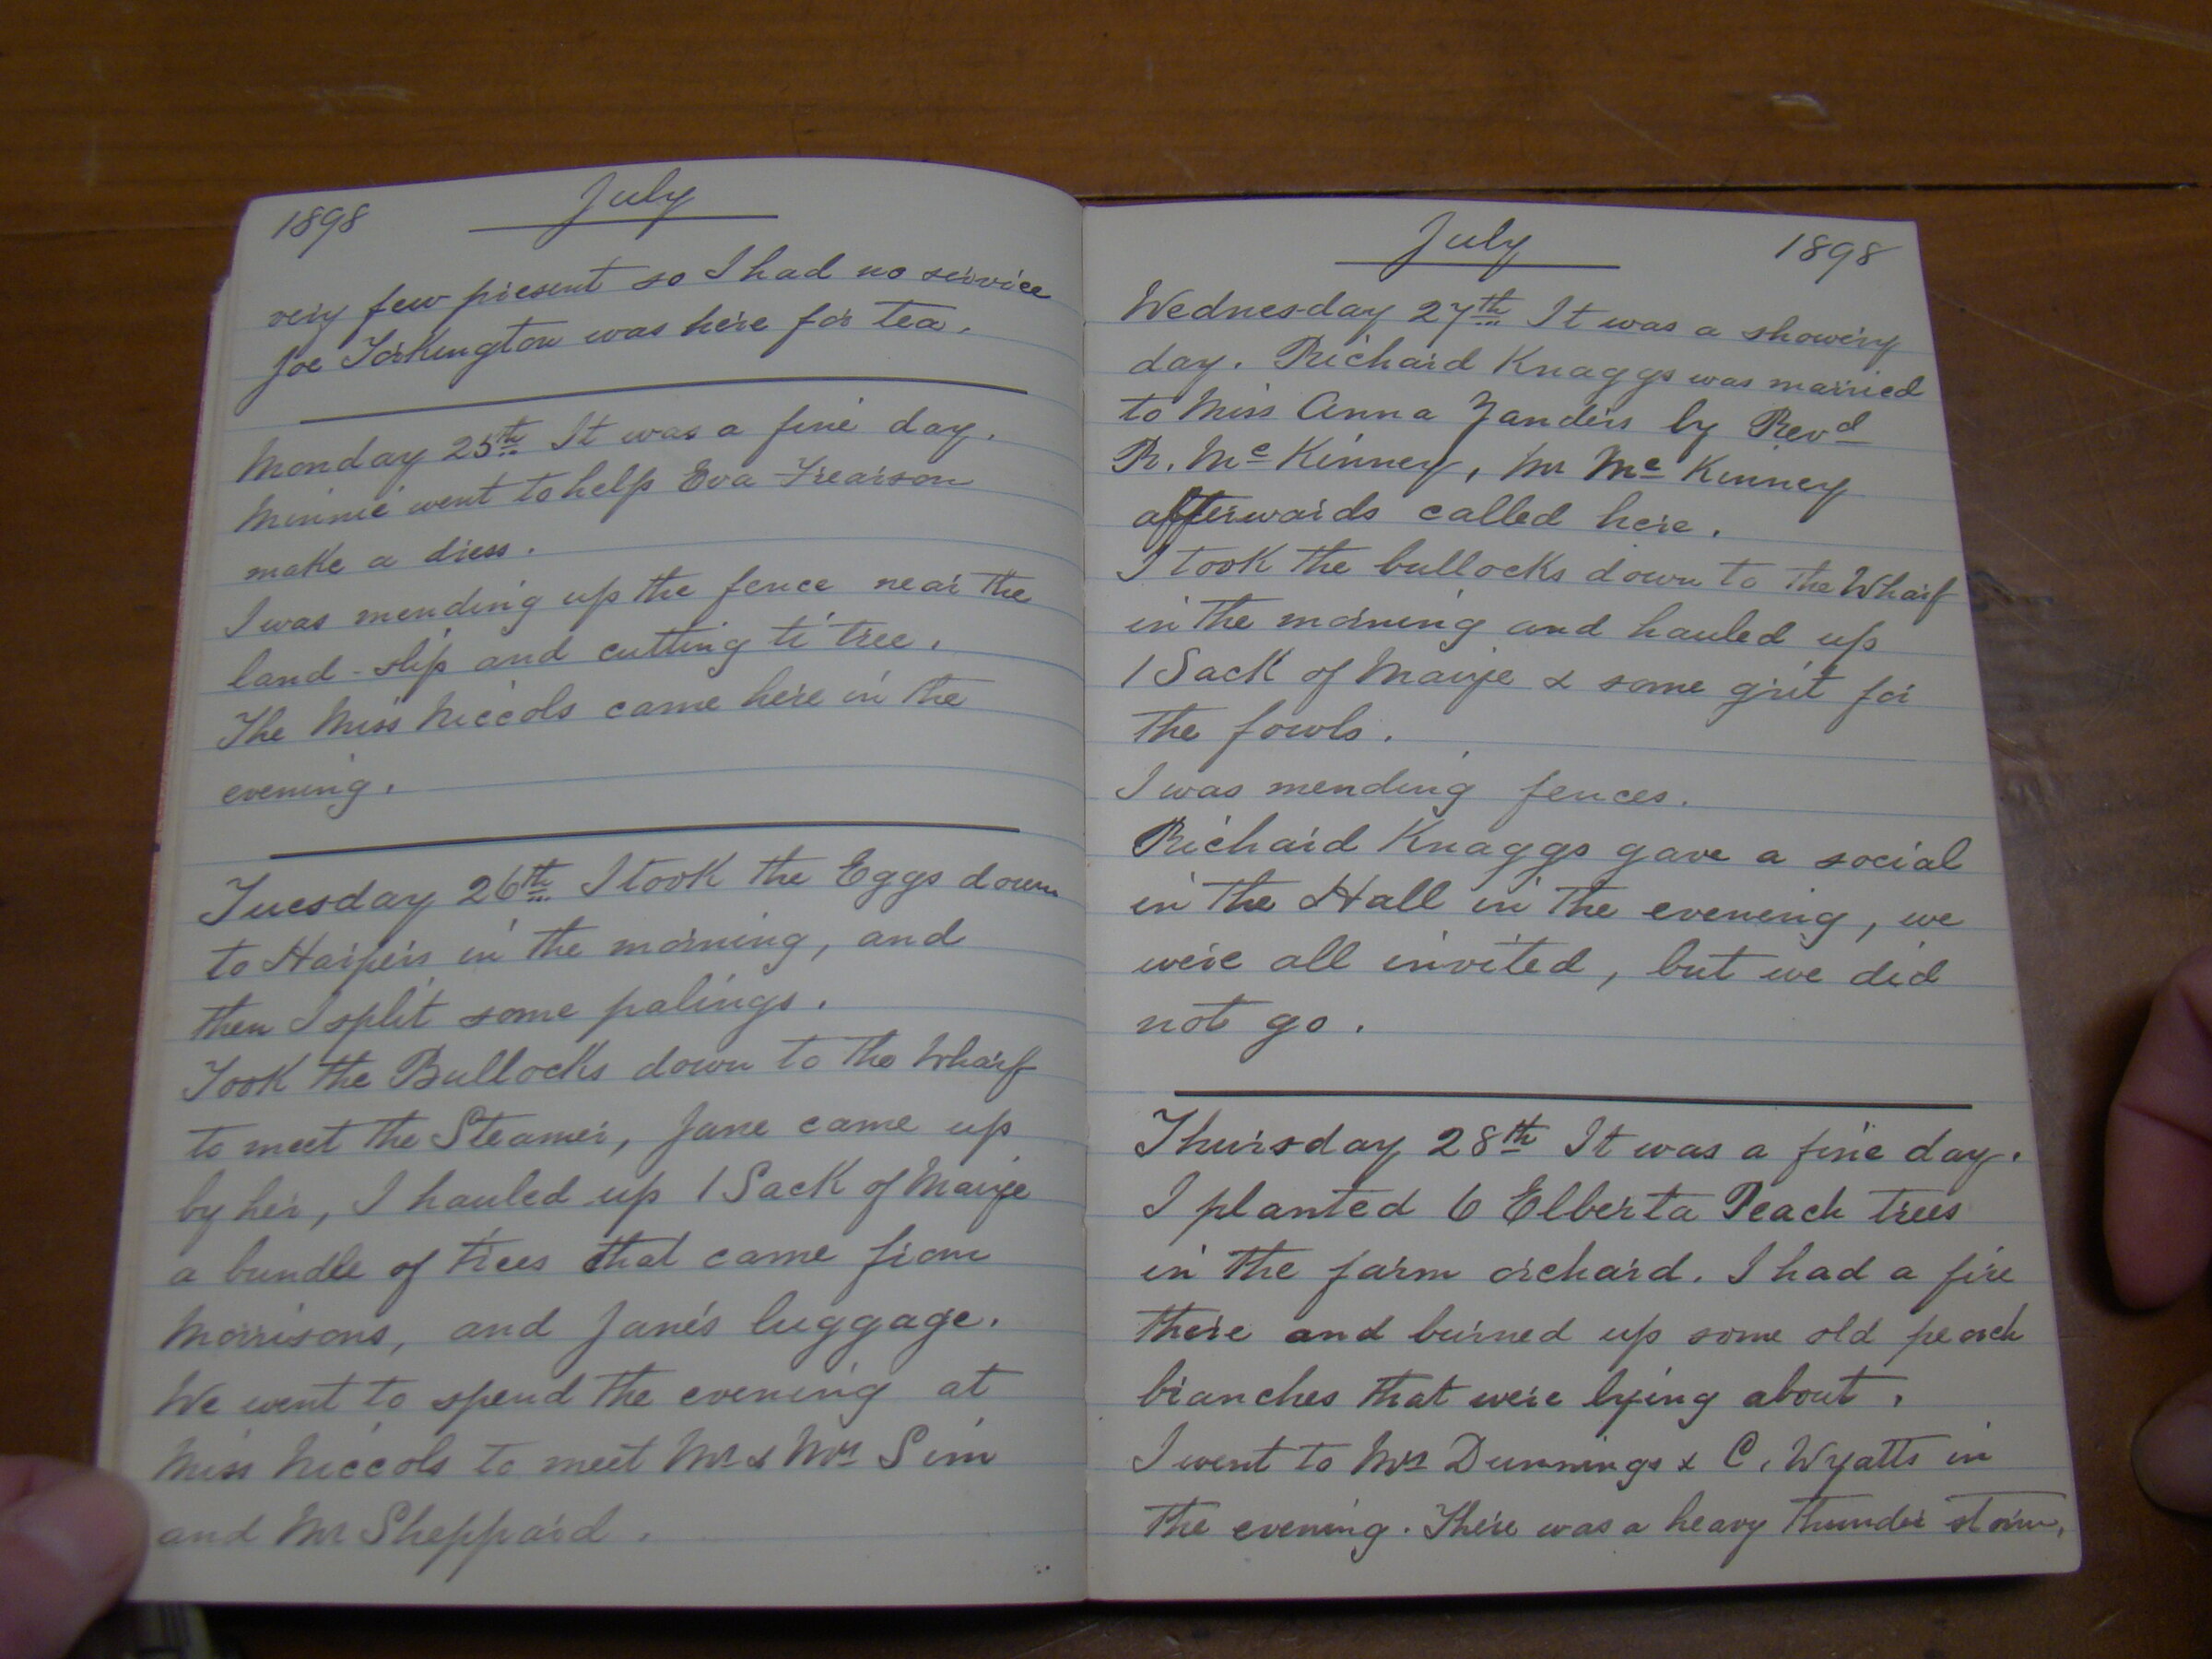 1898 July
very few present so I had no service
Joe Torkington was here for tea.
Monday 25th It was a fine day.
Minnie went to help Eva Frearson
make a dress.
I was mending up the fence near the
land-slip and cutting ti tree.
The Miss Niccols came here in the
evening.
Tuesday 26th I took the Eggs down
to Harpers in the morning, and
then I split some palings.
Took the Bullocks down to the Wharf
to meet the Steamer, Jane came up
by her, I hauled up 1 Sack of Maize
a bundle of trees that came from
Morrisons, and Jane's luggage.
We went to spend the evening at
Miss Niccols to meet Mr & Mrs Sim
and Mr Sheppard.
July 1898
Wednesday 27th It was a showery
day. Richard Knaggs was married
to Miss Anna Zanders by Revd
R. Mc Kinney, Mr Mc Kinney
afterwards called here.
I took the bullocks down to the Wharf
in the morning and hauled up
1 Sack of Maize & some grit for
the fowls.
I was mending fences.
Richard Knaggs gave a social
in the Hall in the evening, we
were all invited, but we did
not go.
Thursday 28th It was a fine day.
I planted 6 Elberta Peach trees
in the farm orchard. I had a fire
there and burned up some old peach
branches that were lying about.
I went to Mrs Dunnings & C. Wyatts in
the evening. There was a heavy thunder storm.